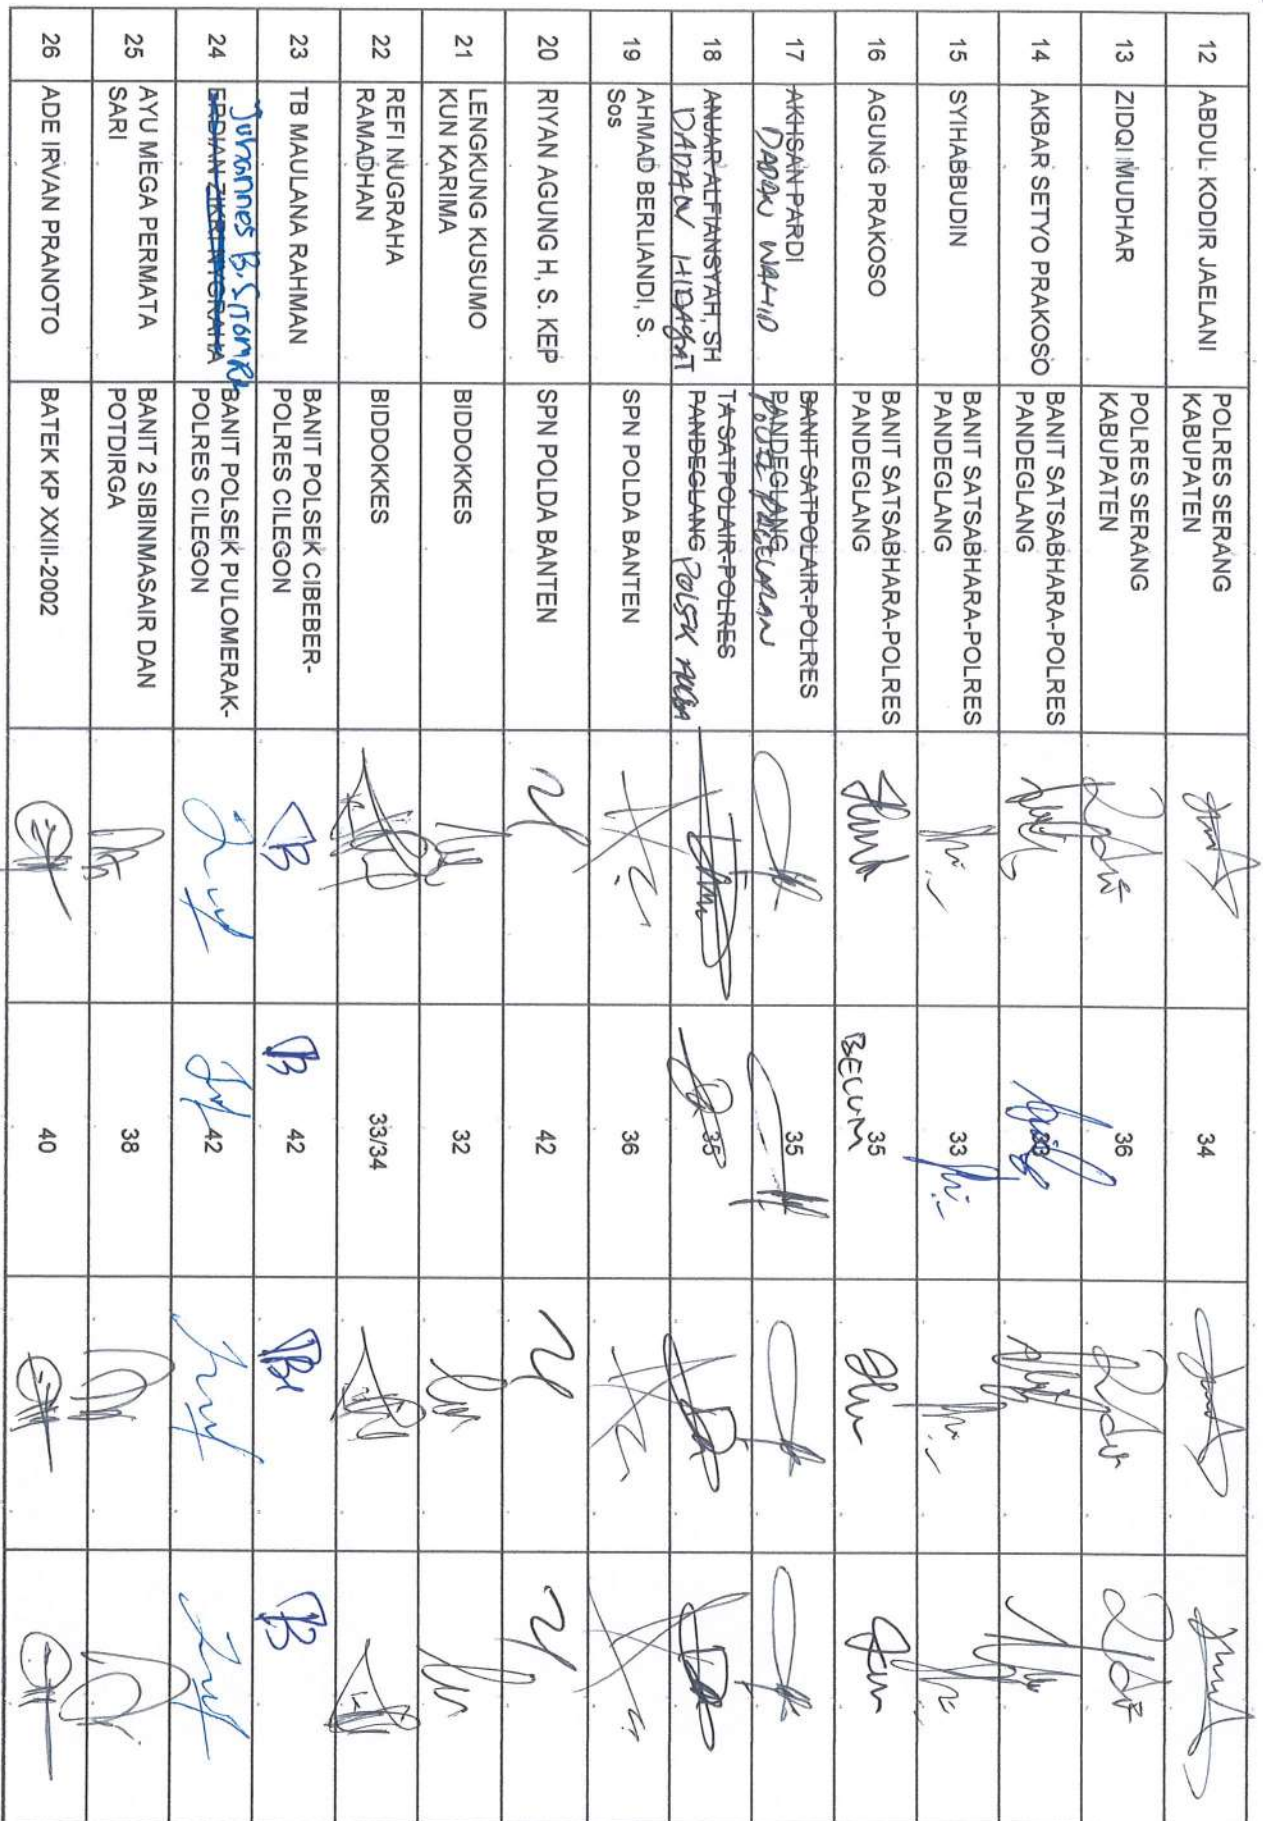 12 ABDUL KODIR JAELANI POLRES SERANG KABUPATEN 34
13 ZIDQI MUDHAR POLRES SERANG KABUPATEN 36
14 AKBAR SETYO PRAKOSO BANIT SATSABHARA-POLRES PANDEGLANG
15 SYIHABBUDIN BANIT SATSABHARA-POLRES PANDEGLANG 33
16 AGUNG PRAKOSO BANIT SATSABHARA-POLRES PANDEGLANG BELUM 35
17 AKHSAN PARDI BANIT SATPOLAIR-POLRES PANDEGLANG 35
WAHID
18 ANJAR ALFIANSYAH, SH TA SATPOLAIR-POLRES PANDEGLANG 35
DADAN HIDAYAT
19 AHMAD BERLIANDI, S. Sos SPN POLDA BANTEN 36
20 RIYAN AGUNG H, S. KEP SPN POLDA BANTEN 42
21 LENGKUNG KUSUMO KUN KARIMA BIDDOKKES 32
22 REFI NUGRAHA RAMADHAN BIDDOKKES 33/34
23 TB MAULANA RAHMAN BANIT POLSEK CIBEBER-POLRES CILEGON 42
24 ERDIAN ZIKRI NYGRAHA BANIT POLSEK PULOMERAK-POLRES CILEGON 42
Juhannes B.
25 AYU MEGA PERMATA SARI BANIT 2 SIBINMASAIR DAN POTDIRGA 38
26 ADE IRVAN PRANOTO BATEK KP XXIII-2002 40